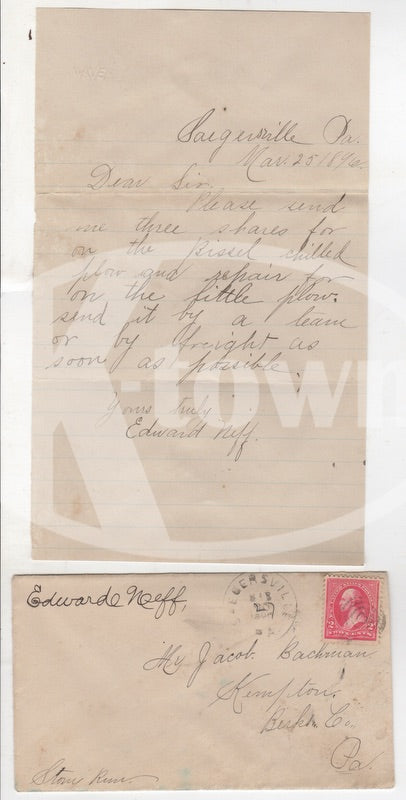 Saegersville Pa.
Mar. 25 1896.
Dear Sir,
Please send
me three shares for
on the Kissel chilled
plow and repair for
on the little plow.
send it by a team
or by freight as
soon as possible.
Yours truly
Edward Neff.
K-town
Edward Neff,
SAEGERSVILLE
Mr Jacob Bachman
Kempton.
Berks Co.
Pa.
Stony Run.